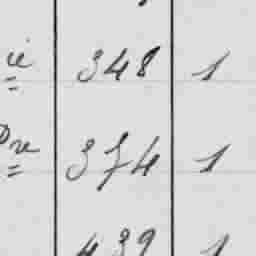 ie 348 1
Dre 374 1
439 1